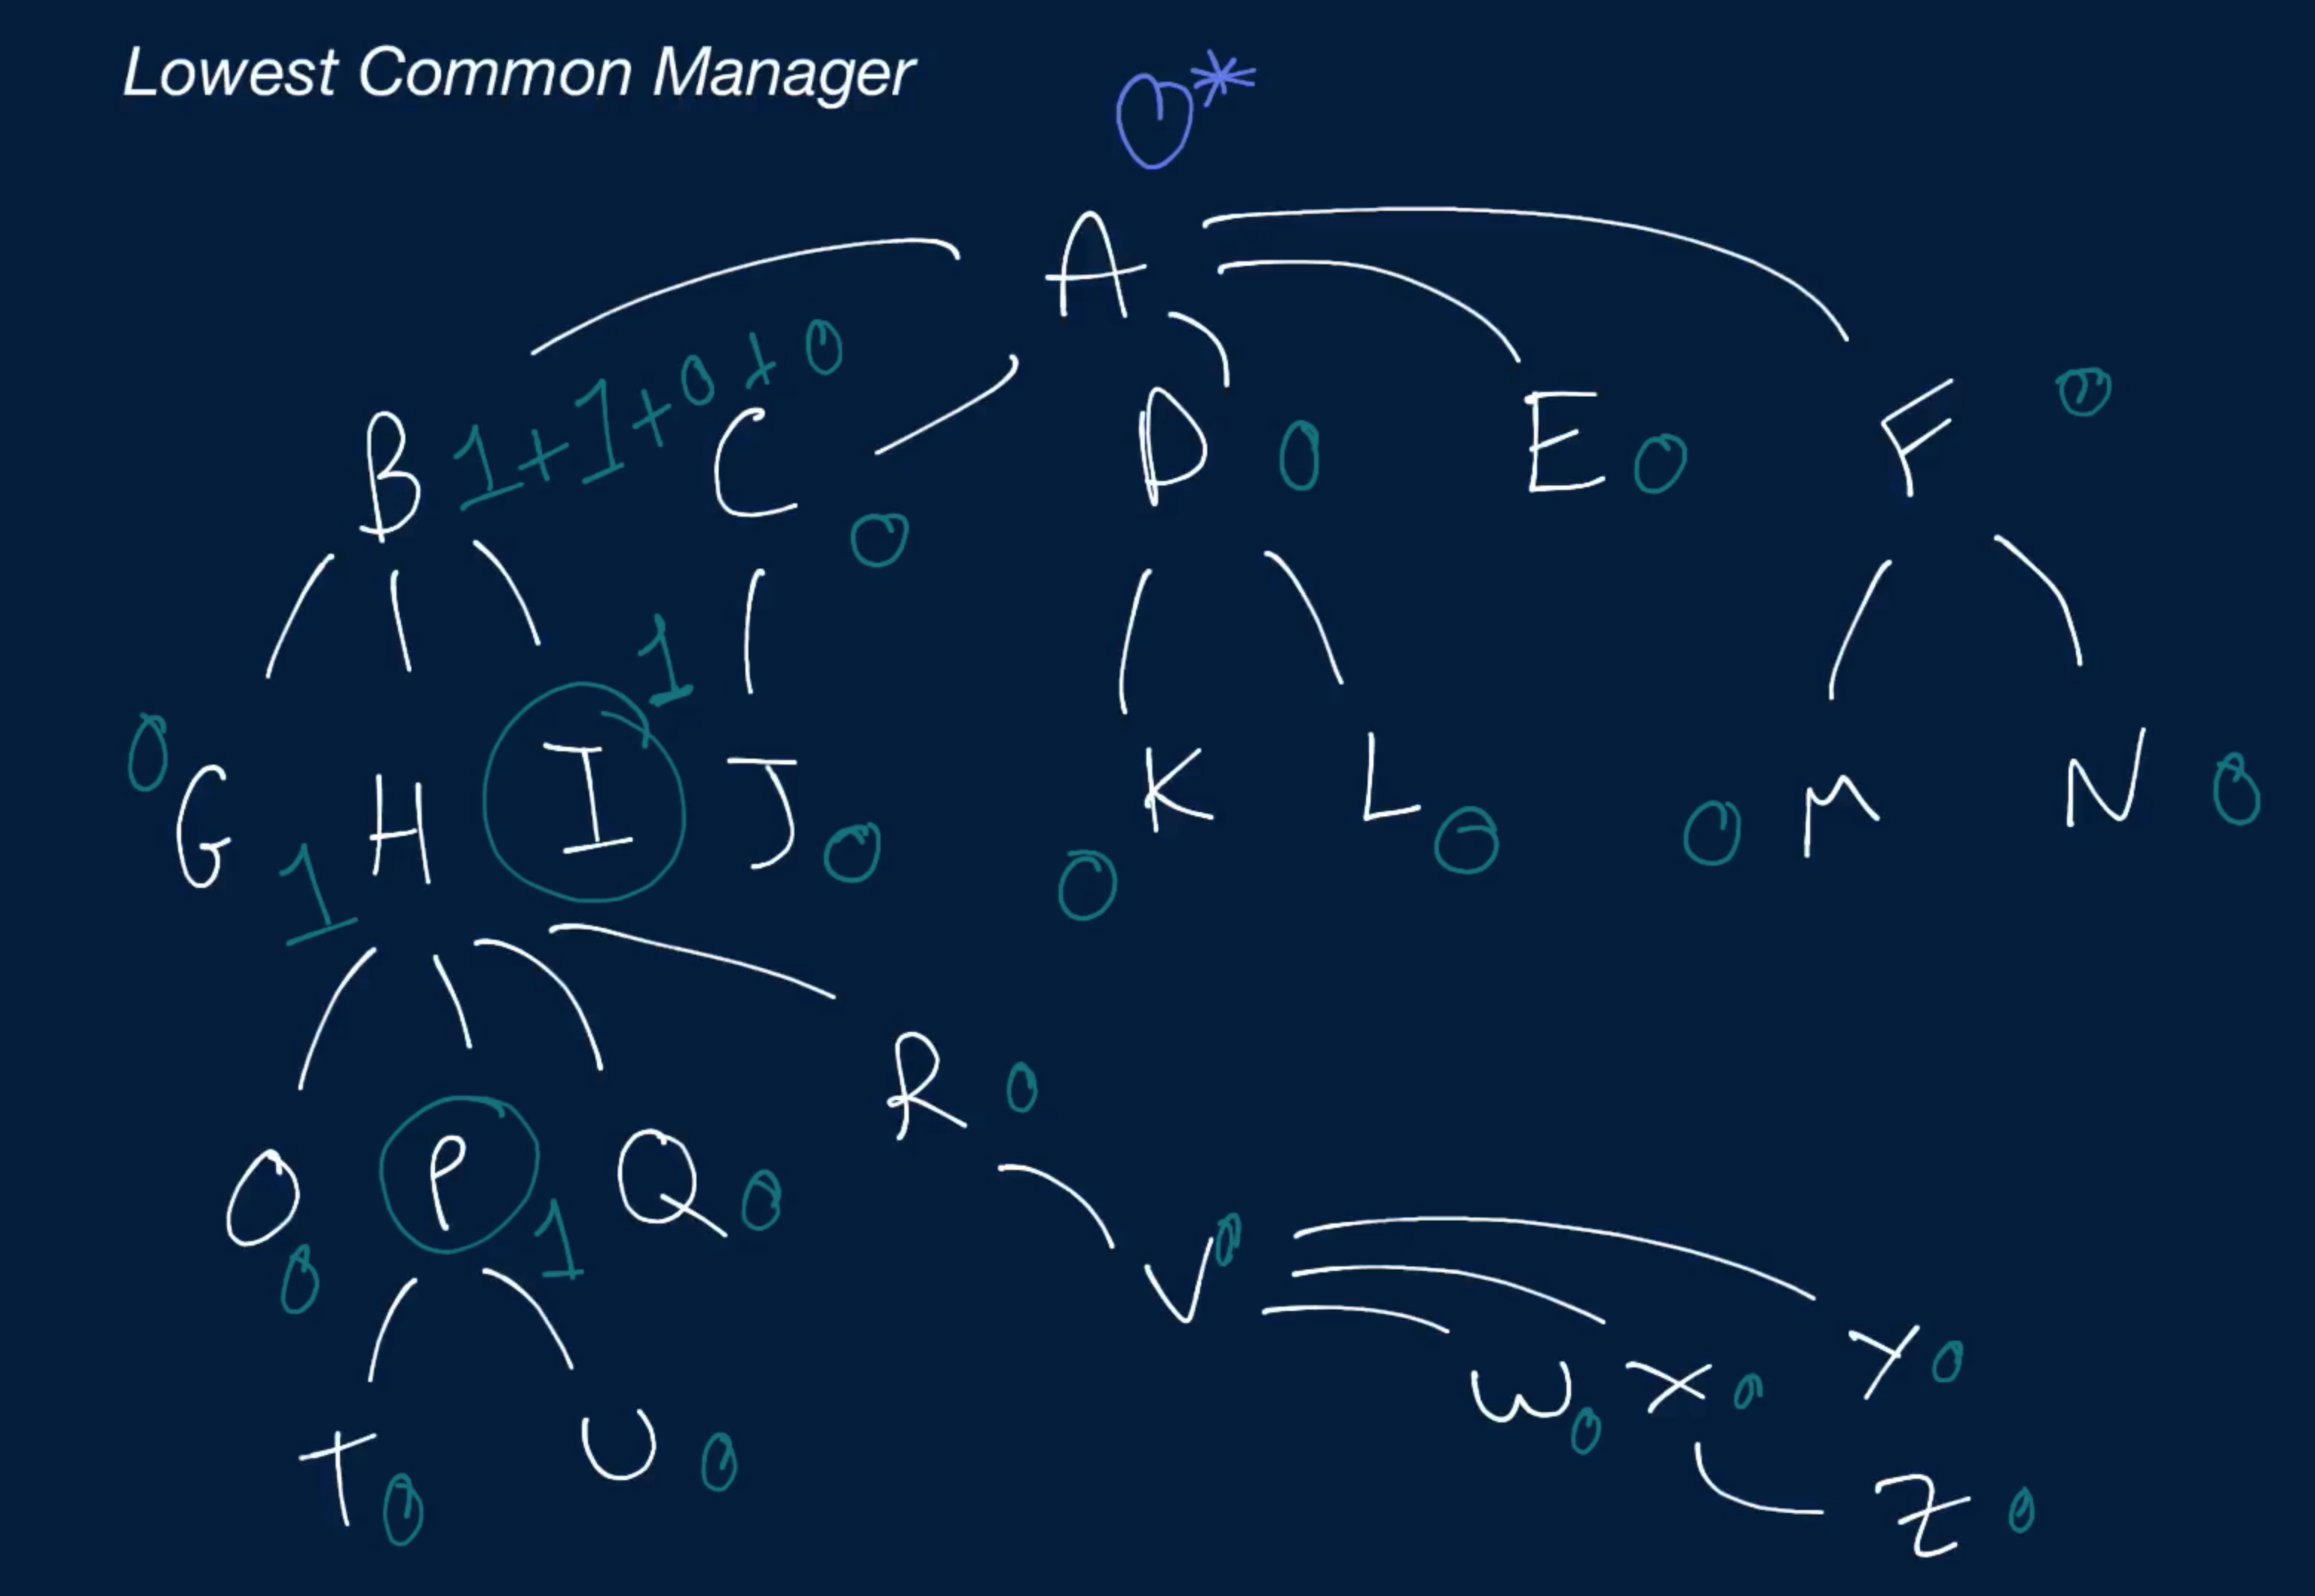 Lowest Common Manager
0*
A
B 1+1+0+0 C 0 D 0 E 0 F 0
0 G 1 H I 1 J 0 0 K L 0 0 M N 0
O 0 P 1 Q 0 R 0
V 0
T 0 U 0 W 0 X 0 Y 0
Z 0